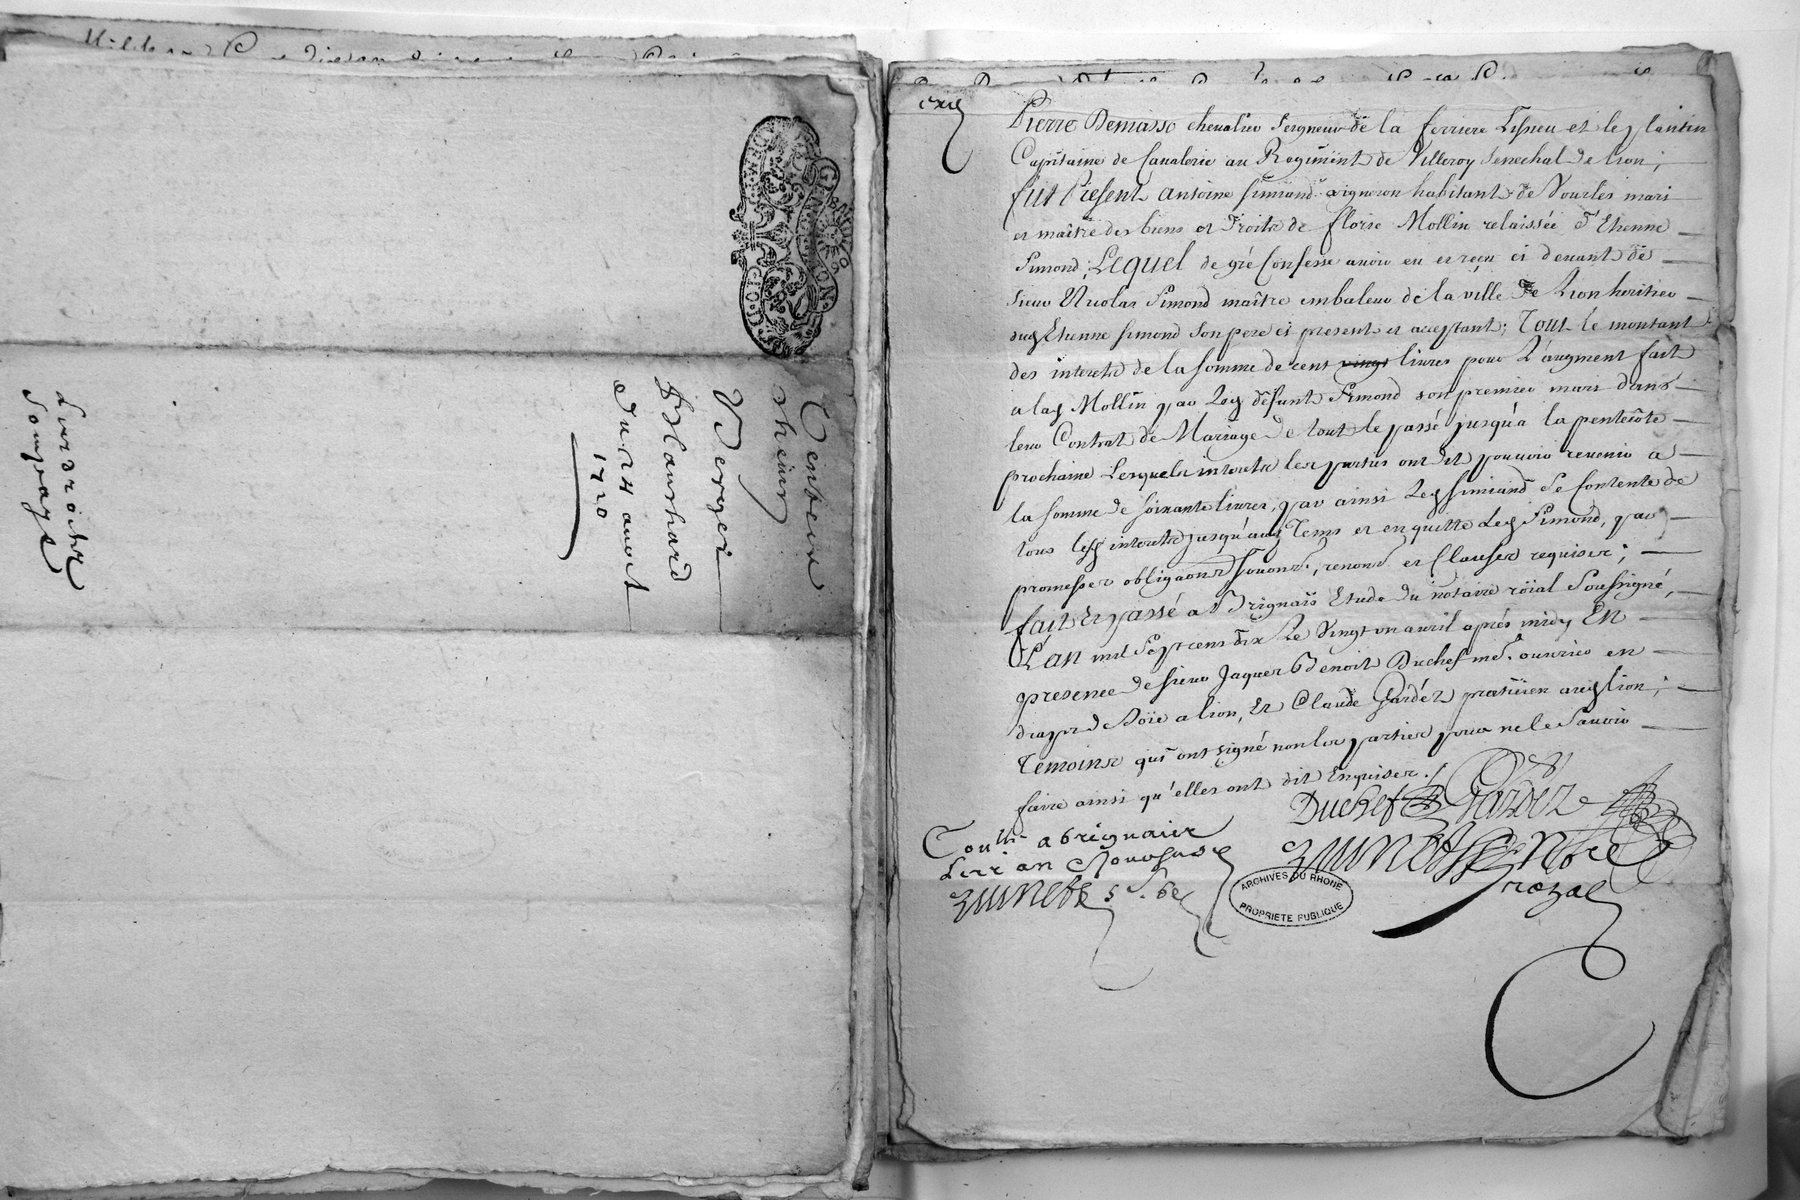 du 24 avost
1720
Pierre Demasso chevalier seigneur de la ferriere Lisneu et le plantin
Capitaine de Cavalerie au Regiment de Villeroy senechal de lion;
fut Present antoine simiand vigneron habitant de Vourles mari
et maître des biens et droits de florie Mollin relaissée d'Etienne
Simond; Lequel de gré Confesse avoir eu et reçu ci devant de
sieur Nicolas Simond maître embaleur de la ville de Lion heritier
dud Etienne simond son pere ci present et acceptant; Tout le montant
des interets de la somme de cent vingt livres pour L'augment fait
a lad Mollin par Led défunt Simond son premier mari dans
leur Contrat de Mariage de tout le passé jusqu'à la pentecôte
prochaine Lesquels interets les parties ont dit pouvoir revenir a
la somme de soixante livres, par ainsi Led simiand se Contente de
tous lesd interets jusqu'aud Tems et en quitte Led Simond, par
promesses obligaons soums., renons et Clauses requises;
fait Et passé a Brignais Etude du notaire roïal soussigné,
L'an mil sept cens dix Le vingt un avril aprés midy En
presence de sieur Jaques Benoit Duchef me. ouvrier en
draps de Soïe a lion, Et Claude Gardéz praticien aud lion;
Temoins qui ont signé non les parties pour ne le savoir
faire ainsi qu'elles ont dit Enquises./.
Duchef Gardez
Conllé a brignais
Zuinet
Zuinet Nore
royal
ARCHIVES DU RHONE
PROPRIETE PUBLIQUE